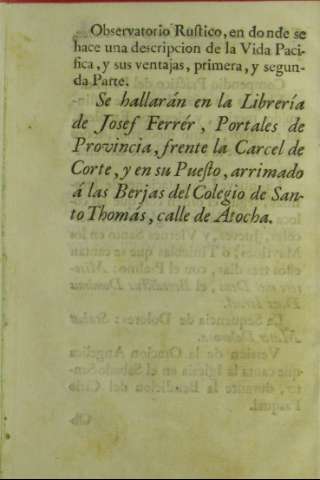 Observatorio Rustico, en donde se
hace una descripcion de la Vida Paci-
fica, y sus ventajas, primera, y segun-
da Parte.
Se hallarán en la Librería
de Josef Ferrér, Portales de
Provincia, frente la Carcel de
Corte, y en su Puesto, arrimado
á las Berjas del Colegio de San-
to Thomás, calle de Atocha.